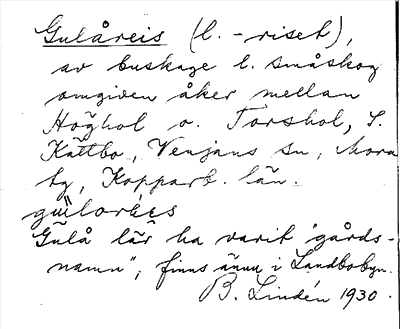 Gulåreis (l. -riset),
av buskage l. småskog
omgiven åker mellan
Höghol o. Torshol, S.
Kättbo, Venjans sn, Mora
tg, Kopparb. län.
gùlorèis
Gulå lär ha varit "gårds-
namn", finns ännu i Landbobyn.
B. Lindén 1930.